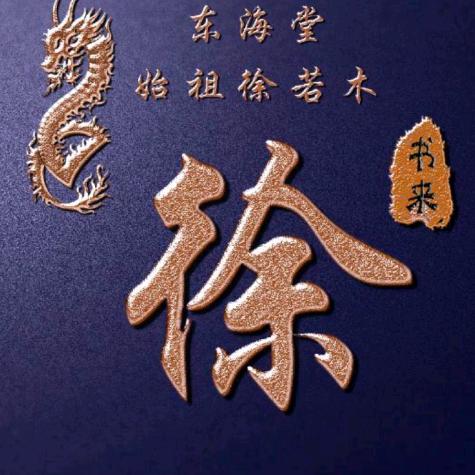 东海堂
始祖徐若木
书来
徐